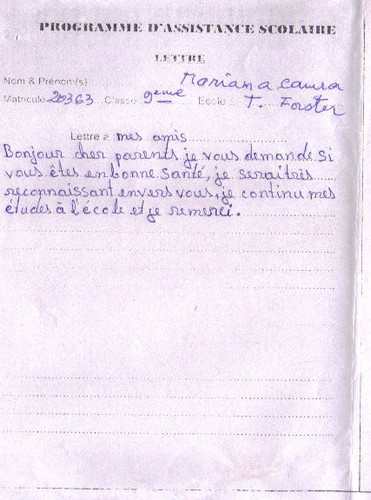 PROGRAMME D'ASSISTANCE SCOLAIRE
LETTRE
Nom & Prénom(s) Mariama camra
Matricule 20363 Classe 9eme Ecole T. Forster
Lettre à mes amis
Bonjour cher parents je vous demande si
vous êtes en bonne santé, je serai tris
reconnaissant envers vous, je continu mes
études à l'école et je remerci.